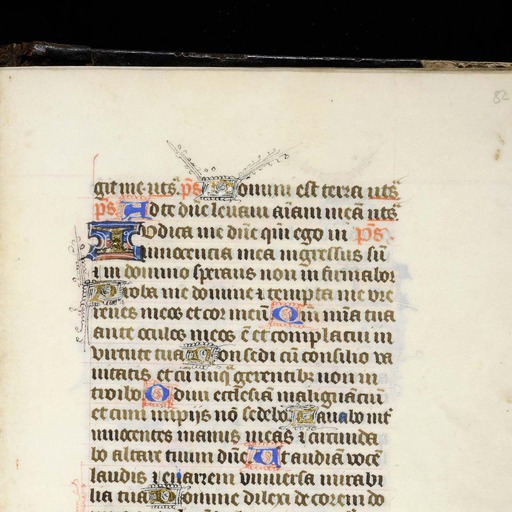 82
git me. uts. ps Domini est terra uts
ps. Ad te dñe leuaui aīam meā uts
Iudica me dñe qm̄ ego in ps.
innocentia mea ingressus sū
⁊ in domino sperans non infirmabor
Proba me domine ⁊ tempta me vre
renes meos et cor meū Qm̄ mīa tua
ante oculos meos ē et complacui in
virtute tua Non sedi cū consilio va
nitatis et cū iniq̄ gerentibꝫ non in
troibo Odiui ecclesiā malignātiū
et cum impijs nō sedebo Lauabo int̄
innocentes manus meas ⁊ circumda
bo altare tuum dñe. Ut audiā vocē
laudis ⁊ enarrem vniuersa mirabi
lia tua Domine dilexi decorem do